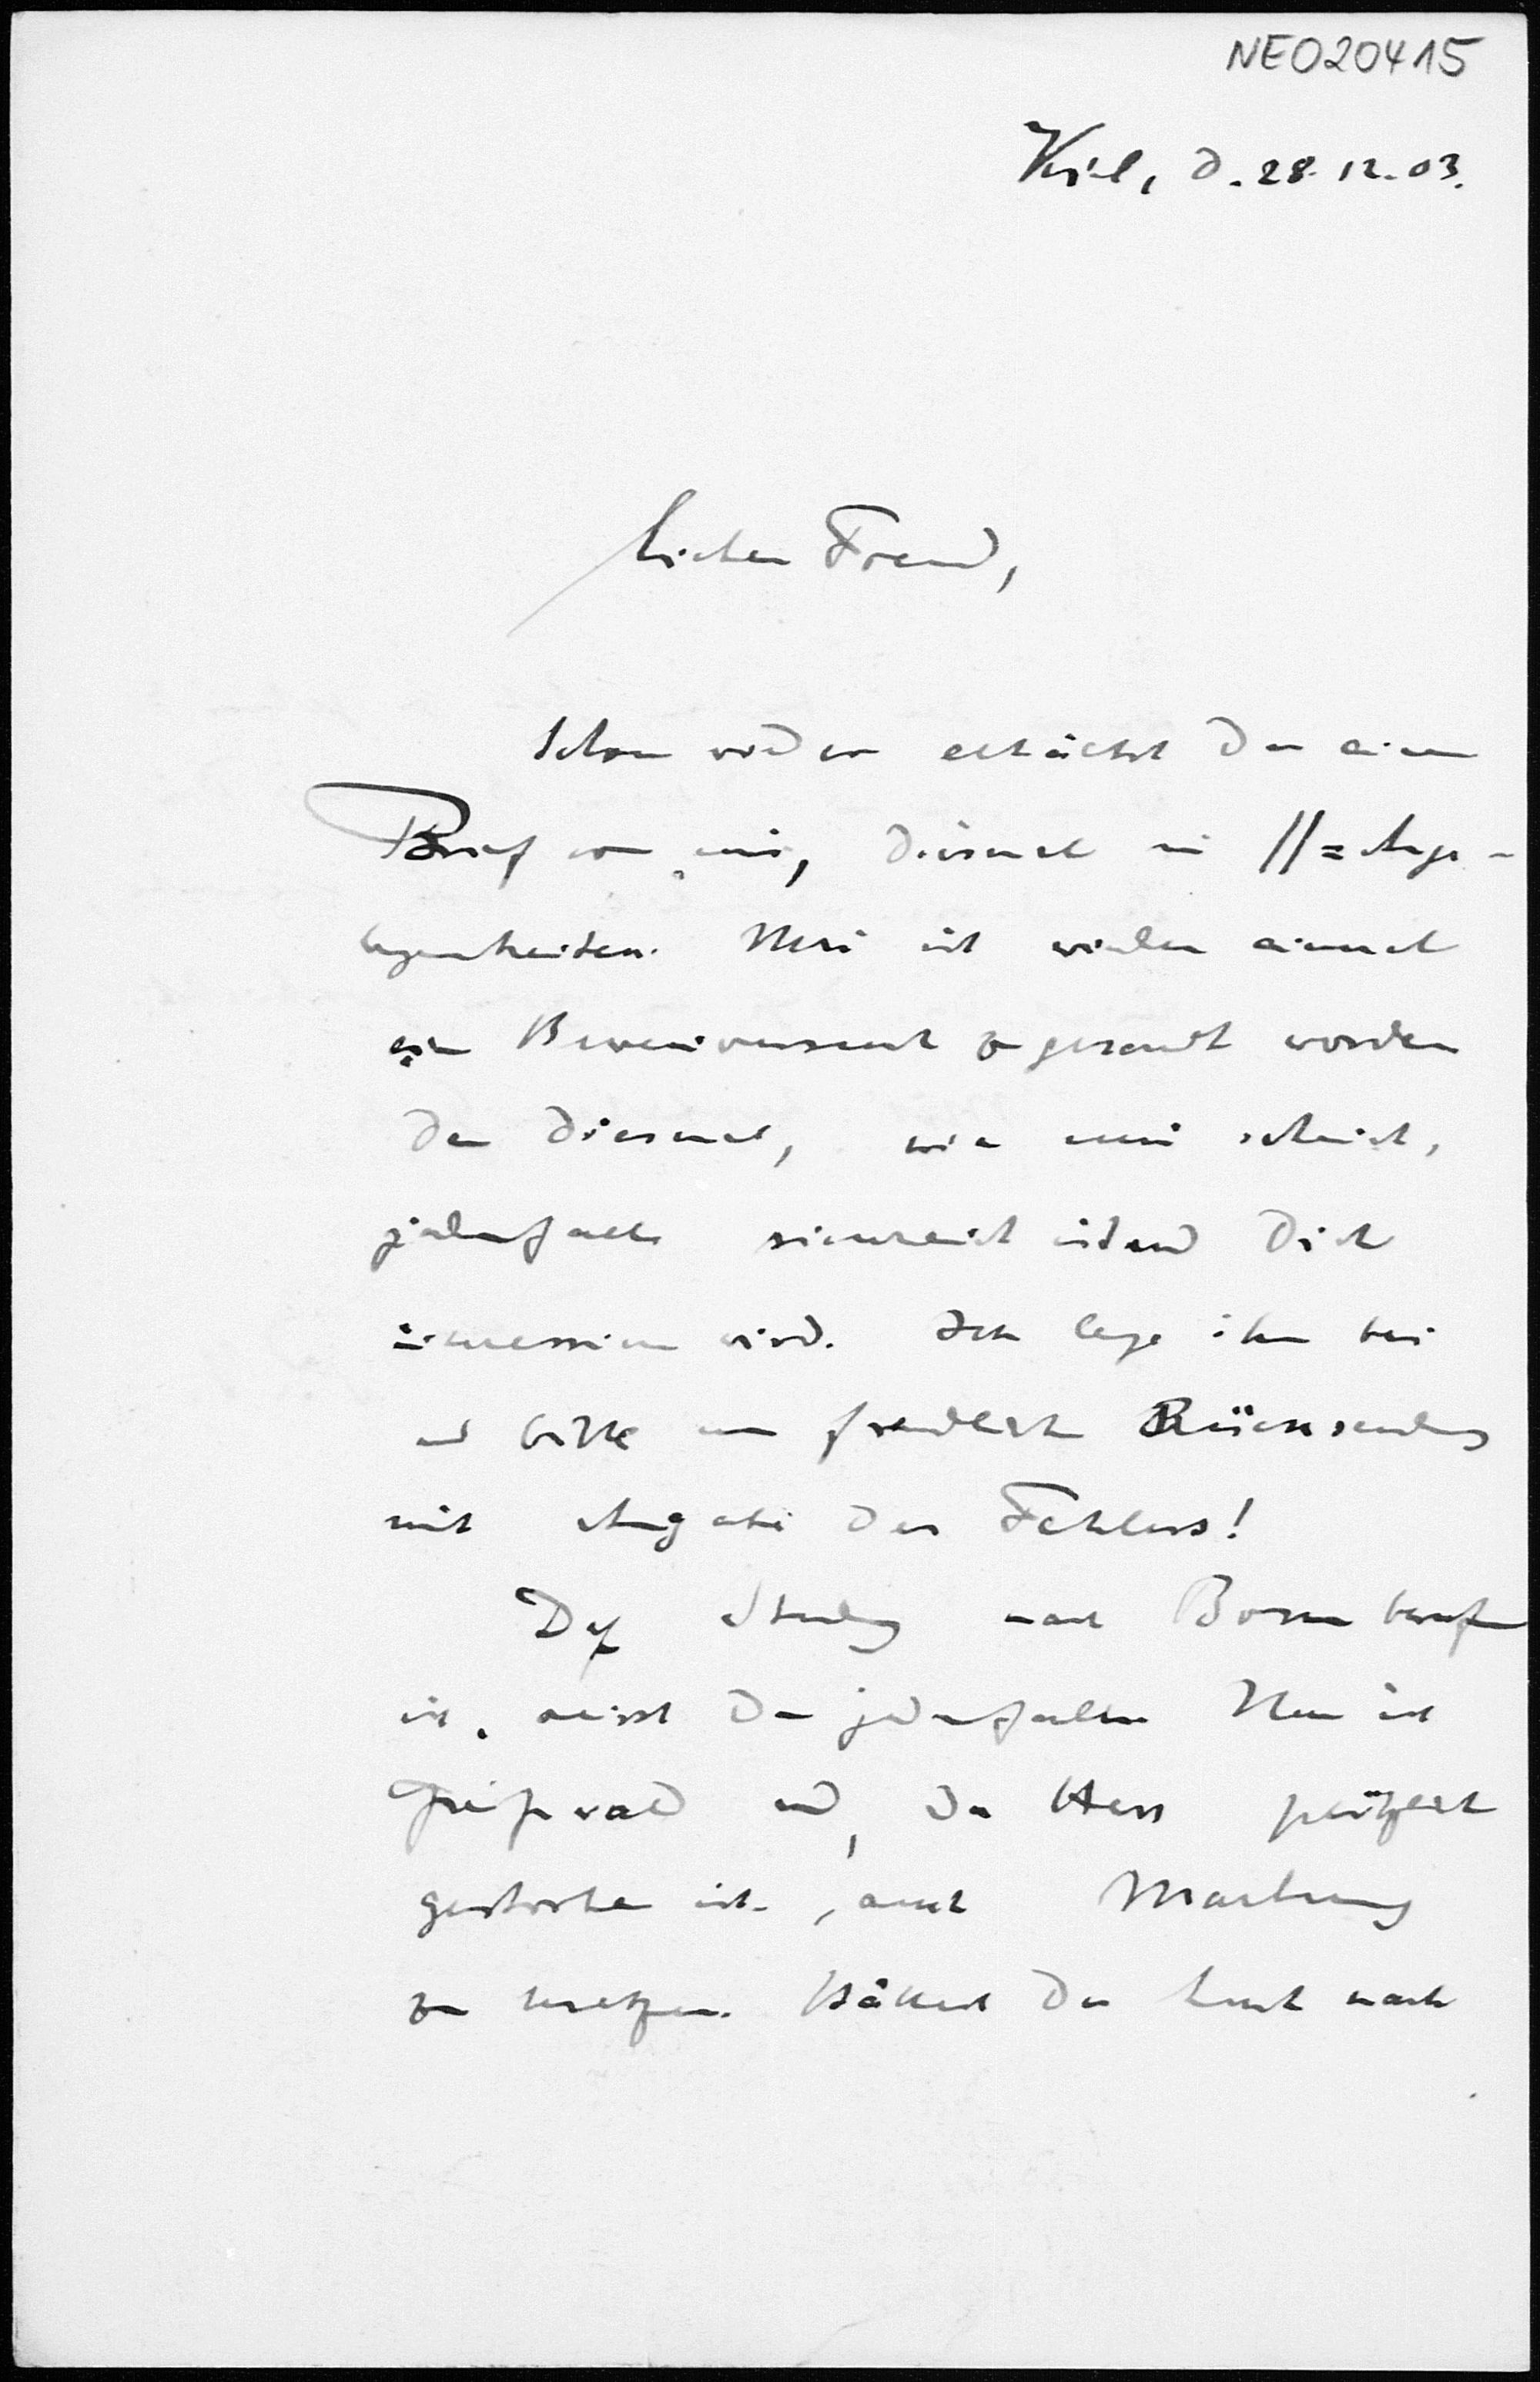 NE020415
Kiel, d. 28. 12. 03.
Lieber Freund,
Schon wieder erhältst Du einen
Brief von mir, diesmal in //=Ange-
legenheiten. Mir ist wieder einmal
ein Beweisversuch zugesandt worden
der diesmal, wie mir scheint,
jedenfalls sinnreich ist und Dich
interessieren wird. Ich lege ihn bei
und bitte um freundliche Rücksendung
mit Angabe des Fehlers!
Daß Study nach Bonn berufen
ist, weisst Du jedenfalls. Nun ist
Greifswald und, da Hess plötzlich
gestorben ist, auch Marburg
zu besetzen. Hättest Du Lust nach